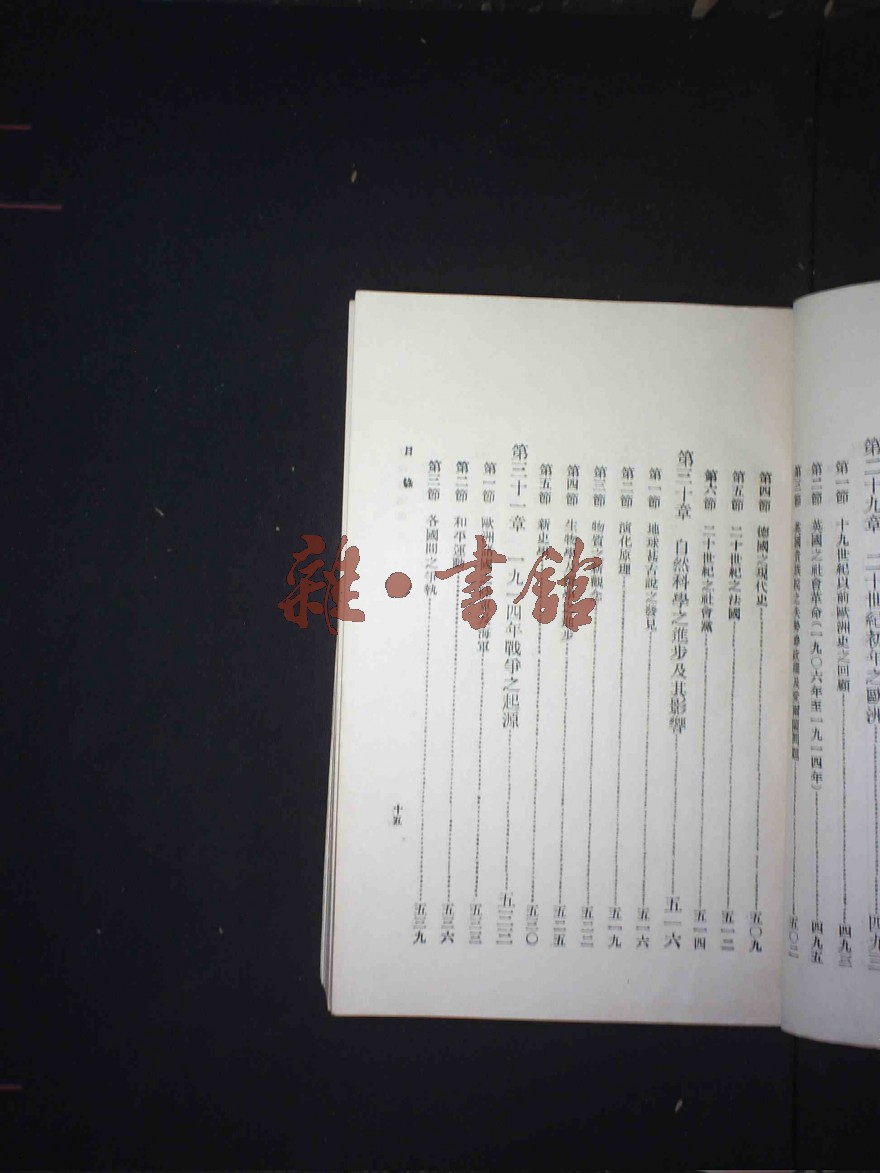 第二十九章 二十世紀初年之歐洲 四九三
第一節 十九世紀以前歐洲史之回顧 四九三
第二節 英國之社會革命(一九〇六年至一九一四年) 四九五
第三節 五〇二
第四節 德國之現代史 五〇九
第五節 二十世紀之法國 五一二
第六節 二十世紀之社會黨 五一四
第三十章 自然科學之進步及其影響 五一六
第一節 地球甚古說之發見 五一六
第二節 演化原理 五一九
第三節 物質之 五二二
第四節 生物學 步 五二五
第五節 新史 五三〇
第三十一章 一九一四年戰爭之起源 五三三
第一節 歐洲 海軍 五三三
第二節 和平運動 五三六
第三節 各國間之爭執 五三九
目錄
十五
雜·書館